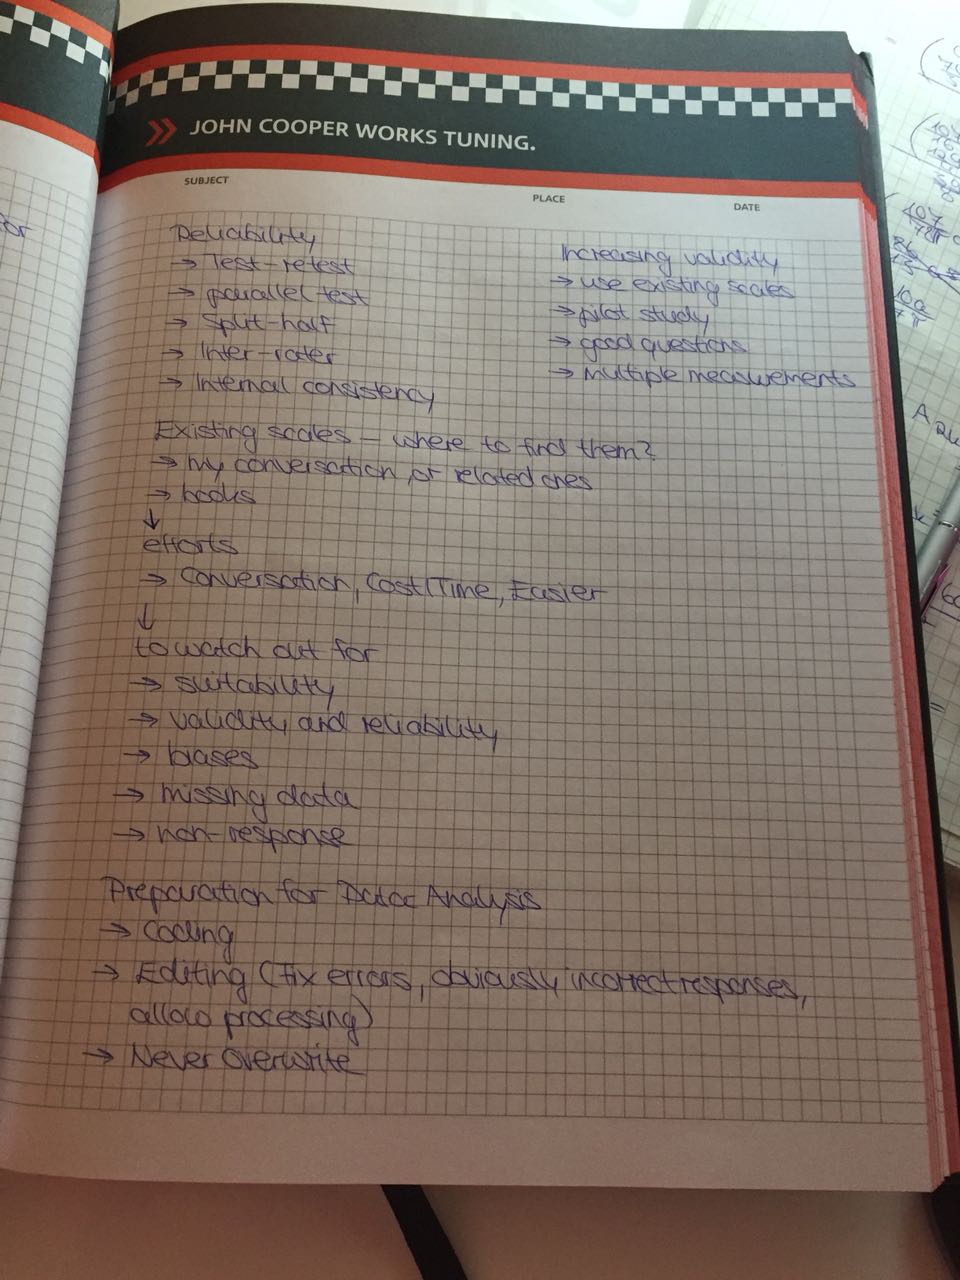 JOHN COOPER WORKS TUNING.
SUBJECT
PLACE
DATE
Reliability
→ Test-retest
→ parallel test
→ Split-half
→ Inter-rater
→ Internal consistency
Increasing validity
→ use existing scales
→ pilot study
→ good questions
→ multiple measurements
Existing scales – where to find them?
→ my conversation, or related ones
→ books
↓
efforts
→ Conversation, Cost/Time, Easier
↓
to watch out for
→ suitability
→ validity and reliability
→ biases
→ missing data
→ non-response
Preparation for Data Analysis
→ Coding
→ Editing (Fix errors, obviously incorrect responses,
allow processing)
→ Never Overwrite